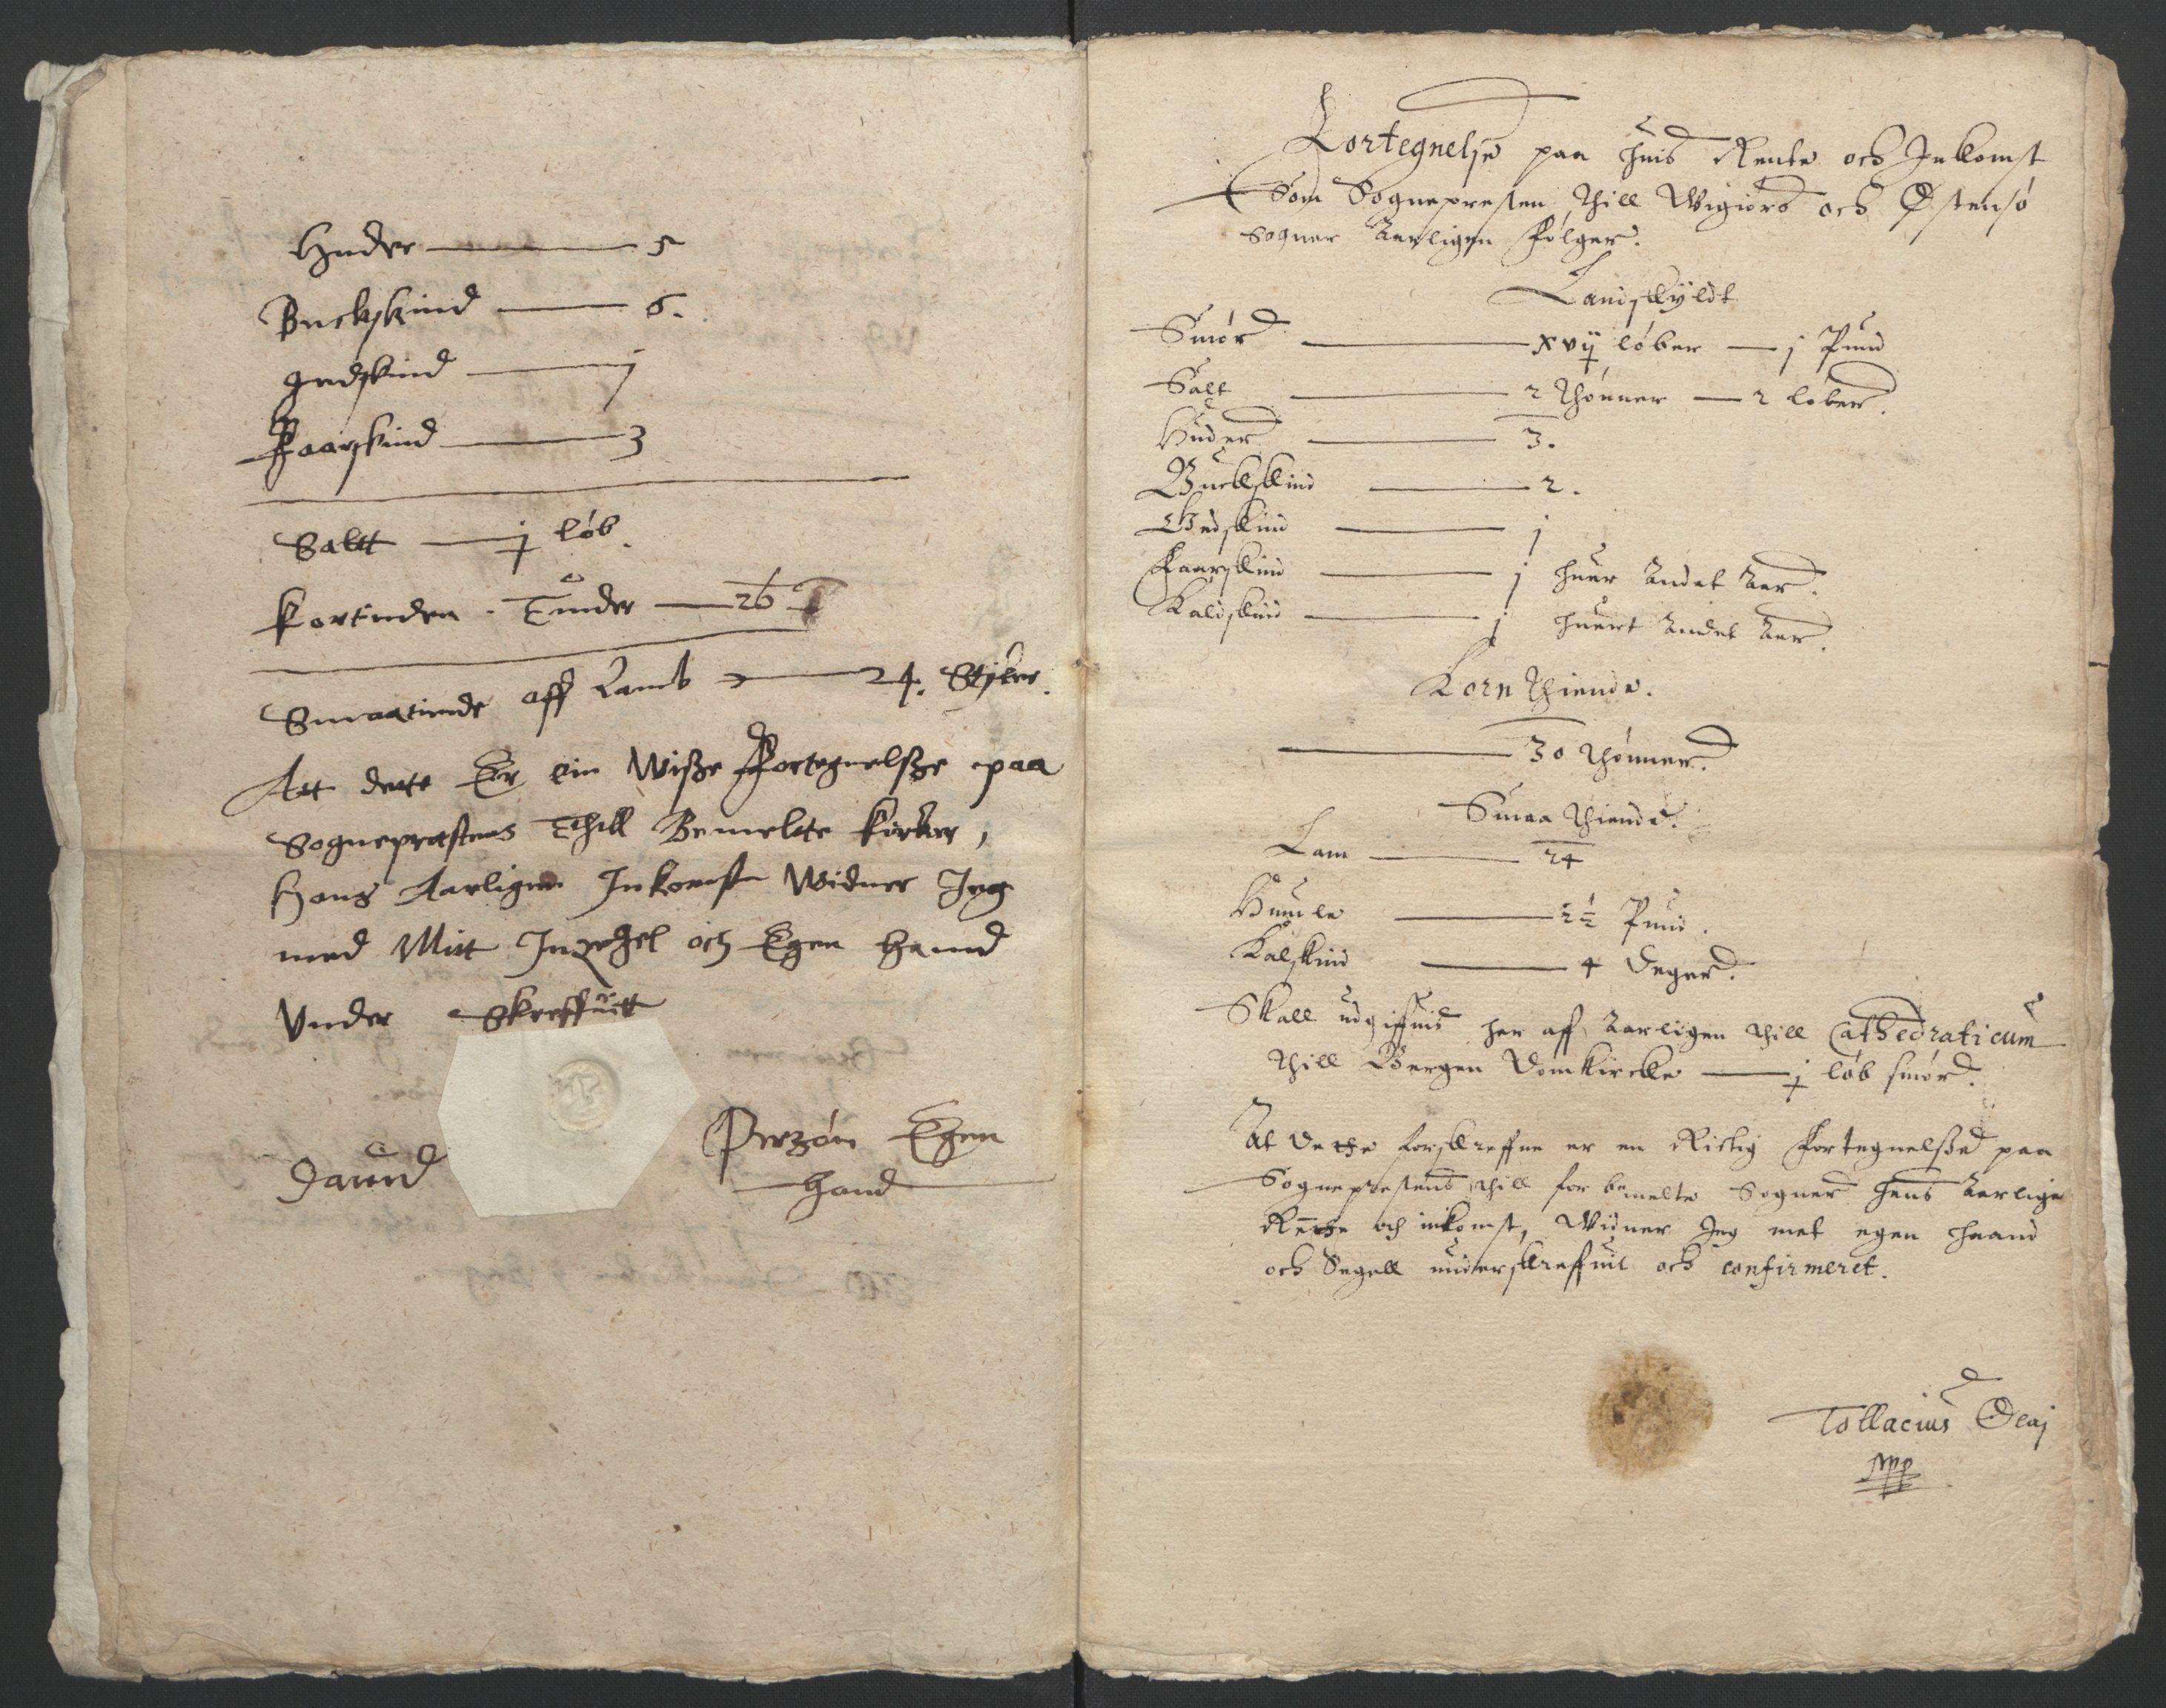 Huder ——— 5
Buckskind ——— 6.
Gedskind ——— j
Faarskind ——— 3
Saltt ——— j løb.
Kortinden. Tůnder ——— 26
Smaatinde aff Lamb ——— 24. Stÿker.
Att dette Er ein Wisse Fortegnelsse paa
Sognepræstens Thill Bemelte Kirker,
Hans Aarligen Inkomst Widner Jeg
med Mitt Inzegel och Egen Hannd
Vnder Skreffuitt
Dauid Perzøn Egen
Hand
Fortegnelse paa huis Rente och Inkomst
Som Sognepresten thill Wigiørs och Østensø
Sogner Aarligen følger.
Landskyldt
Smør ——— xvij løber — j Pund
Salt ——— 2 thønner — 2 løber.
Huder ——— 3.
Buckskind ——— 2.
Gedskind ——— j
Faarskind ——— j huer Andet Aar.
Kalfskind ——— j huert Andet Aar.
Korn thiende.
——— 30 thønner.
Smaa thiende.
Lam ——— 24
Humle ——— 2½ Pund.
Kalskind ——— 4 Deger.
Skall udgiffuis her aff Aarligen thill Cathedraticum
thill Bergen Domkircke ——— j løb smør.
At dette forskreffne er en Richtig Fortegnelsse paa
Sogneprestens thill for bemelte Sogner hans Aarlige
Rente och inkomst, Widner Jeg met egen Haand
och Segell underskreffuit och confirmeret.
Tollacius Olaj
mpp